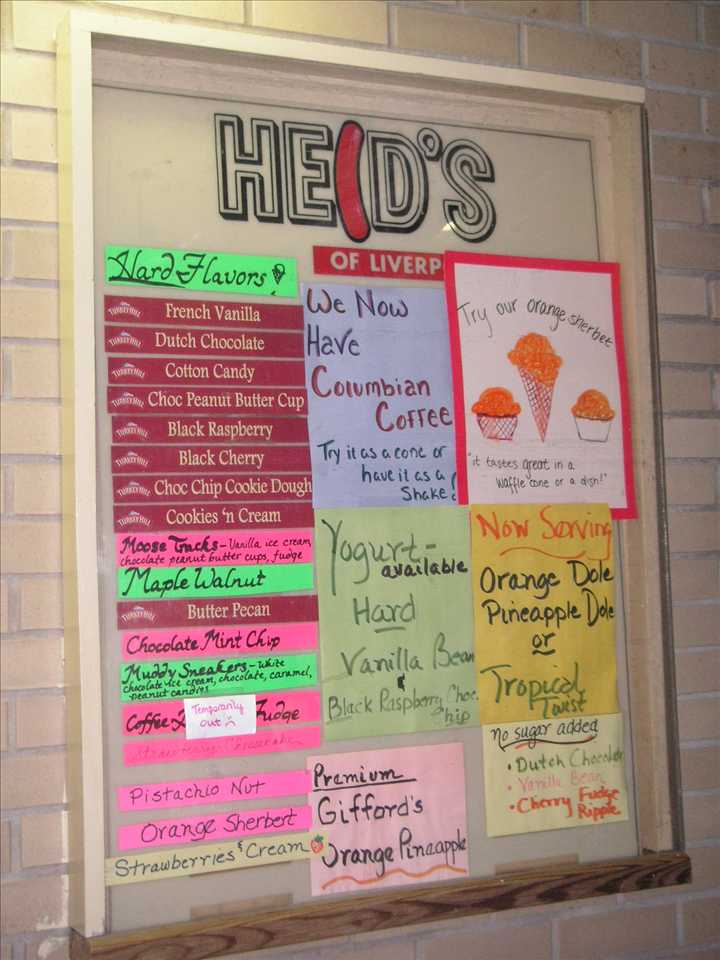 HEID'S
OF LIVERP
Hard Flavors
TURKEY HILL French Vanilla
TURKEY HILL Dutch Chocolate
TURKEY HILL Cotton Candy
TURKEY HILL Choc Peanut Butter Cup
TURKEY HILL Black Raspberry
TURKEY HILL Black Cherry
TURKEY HILL Choc Chip Cookie Dough
TURKEY HILL Cookies 'n Cream
Moose Tracks - Vanilla ice cream,
chocolate peanut butter cups, fudge
Maple Walnut
TURKEY HILL Butter Pecan
Chocolate Mint Chip
Muddy Sneakers - White
chocolate ice cream, chocolate, caramel,
peanut candies
Coffee Fudge
Temporarily
out
Strawberry Cheesecake
Pistachio Nut
Orange Sherbert
Strawberries & Cream
We Now
Have
Columbian
Coffee
Try it as a cone or
have it as a
Shake!
Try our orange sherbet
"it tastes great in a
waffle cone or a dish!"
Yogurt-
available
Hard
Vanilla Bean
&
Black Raspberry Choc.
Chip
Now Serving
Orange Dole
Pineapple Dole
or
Tropical
Twist
no sugar added
• Dutch Chocolate
• Vanilla Bean
• Cherry Fudge
Ripple
Premium
Gifford's
Orange Pineapple